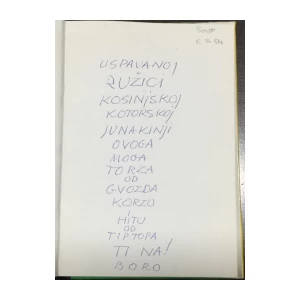 USPAVANOJ
RUŽICI
KOSINJSKOJ
KOTORSKOJ
JUNAKINJI
OVOGA
MOGA
TORZA
OD
GVOZDA
KORZO
I
HITU
OD
TIP TOPA
TINA!
BORO